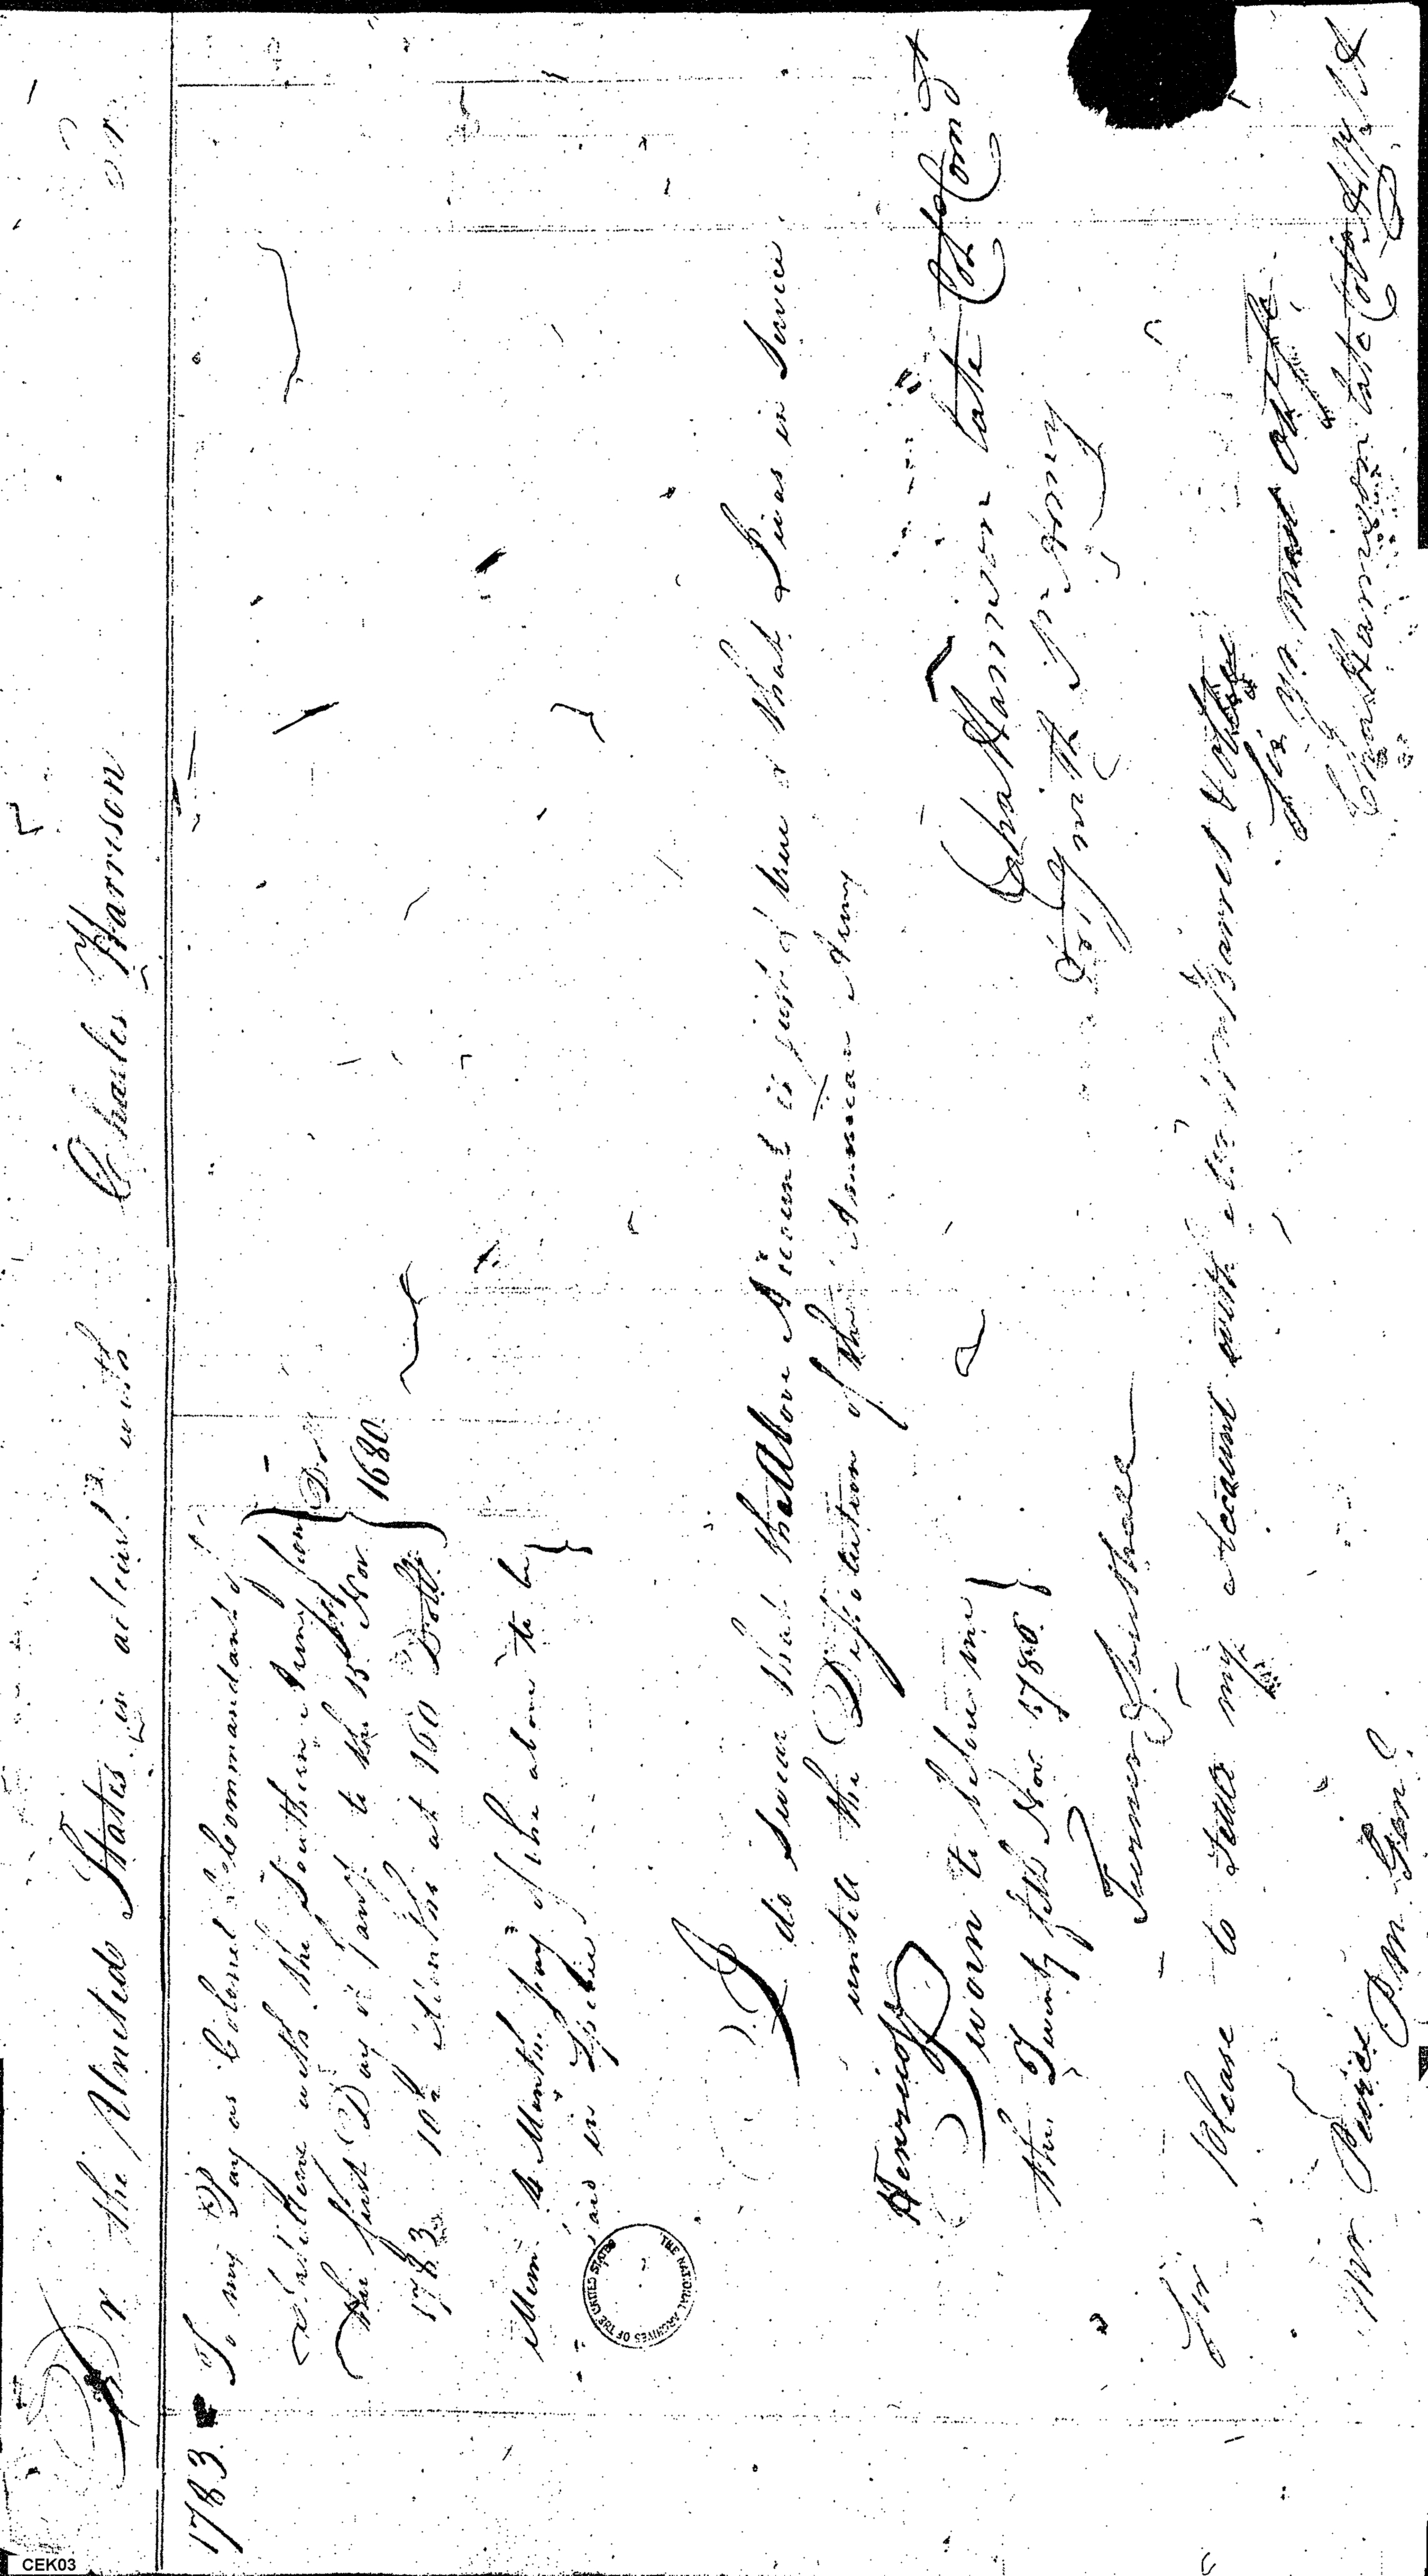 Dr the United States in accout with Charles Harrison Cr
1783 To my Pay as Colonel Commandant of
Artillerie with the Southern Army from
the first Day of Jany to the 15 Nov
1783 10½ Months at 160 Dolls
Dolls
1680
Mem. 4 Months pay of the above to be
paid in Specie
I do Swear that the Above Account is just & true & that I was in Service
untill the Dissolution of the American Army
Chas Harrison late Col Comdt
Henrico
Sworn to before me
the Twenty fifth Nov 1785
Turner Southall
Sir
Please to Settle my Account with & oblige
Sir yr. most Ob
Chas Harrison late Col
Mr Peirce
P M Genl
THE NATIONAL ARCHIVES OF THE UNITED STATES
CEK03